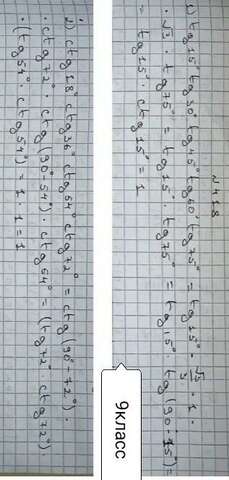 №418
1) tg15° tg30° tg45° tg60° tg75° = tg15° · √3/3 · 1 ·
· √3 · tg75° = tg15° · tg75° = tg15° · tg(90°-15°) =
= tg15° · ctg15° = 1
2) ctg18° ctg36° ctg54° ctg72° = ctg(90°-72°) ·
· ctg72° · ctg(90°-54°) · ctg54° = (tg72° · ctg72°)
· (tg54° · ctg54°) = 1 · 1 = 1
9класс